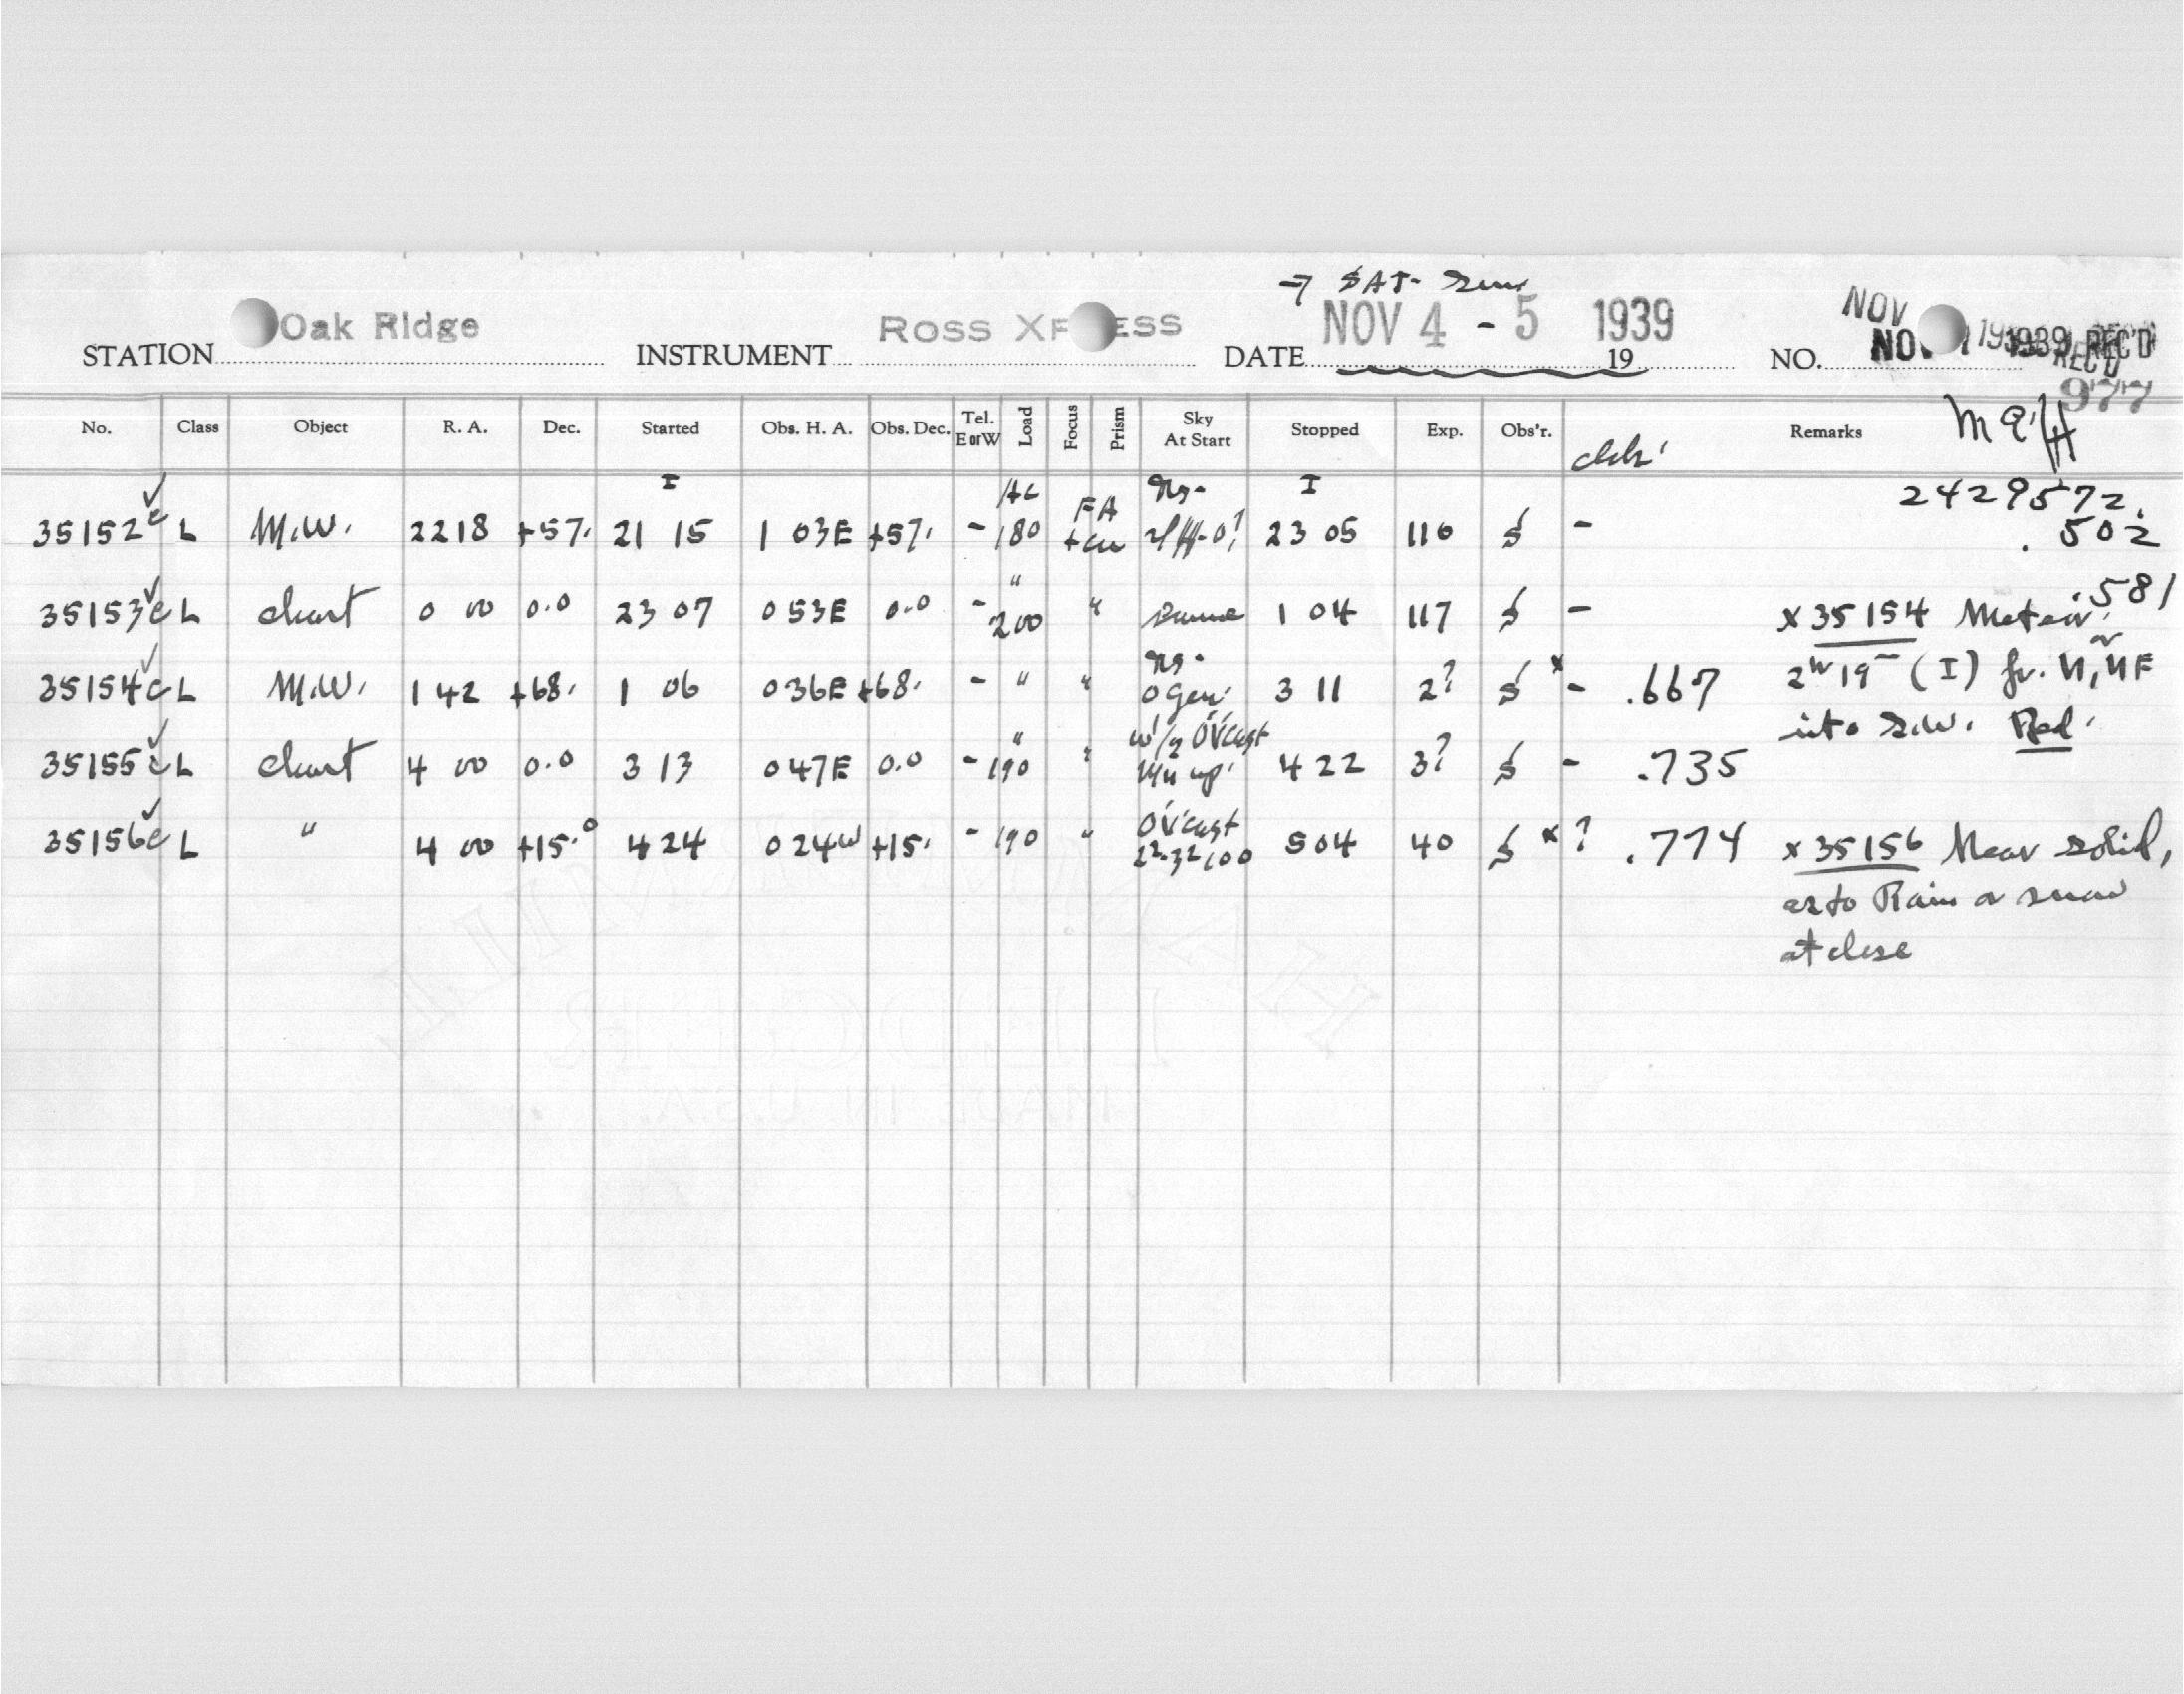 → SAT-
STATION Oak Ridge INSTRUMENT ROSS XP ESS DATE NOV 4 - 5 1939 19 NO. NOV 1939 REC'D
977
No. Class Object R. A. Dec. Started Obs. H. A. Obs. Dec. Tel. E or W Load Focus Prism Sky At Start Stopped Exp. Obs'r. Remarks
2429572.
I I
35152 L M.W. 2218 +57. 21 15 1 03E +57. - 180 FA 23 05 110 - .502
35153 L chart 0 00 0.0 23 07 0 53E 0.0 - " 200 " same 1 04 117 - .581
x 35154 Meteor
35154 L M.W. 1 42 +68. 1 06 0 36E +68. - " " 3 11 2? x - .667 2h 19m (I) fr. N, NE
into S.W. Red.
35155 L chart 4 00 0.0 3 13 0 47E 0.0 - " 190 " ov'cast 4 22 3? - .735
35156 L " 4 00 +15.0 4 24 0 24W +15. - 190 " ov'cast 5 04 40 x ? .774 x 35156 Near solid,
as to Rain or snow
at close
MADE IN U.S.A.